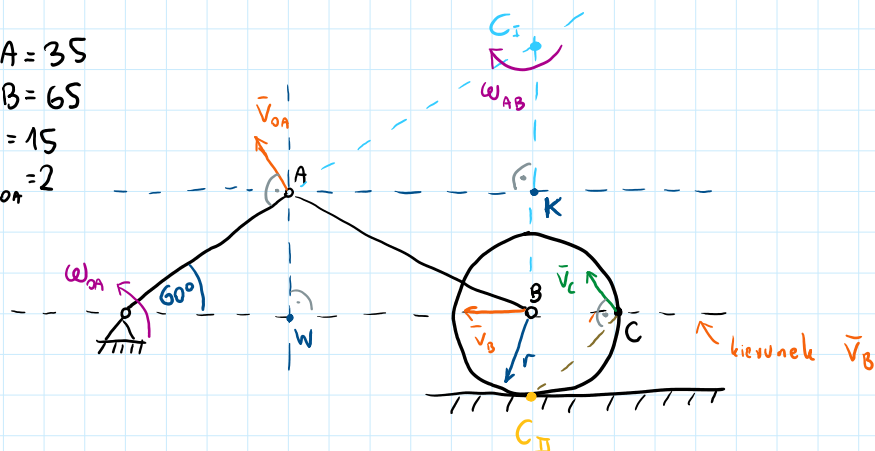 A = 35
B = 65
= 15
OA = 2
C I
ω AB
V̄ OA
A
K
ω OA
60°
W
B
V̄ C
V̄ B
r
C
kierunek V̄ B
C II